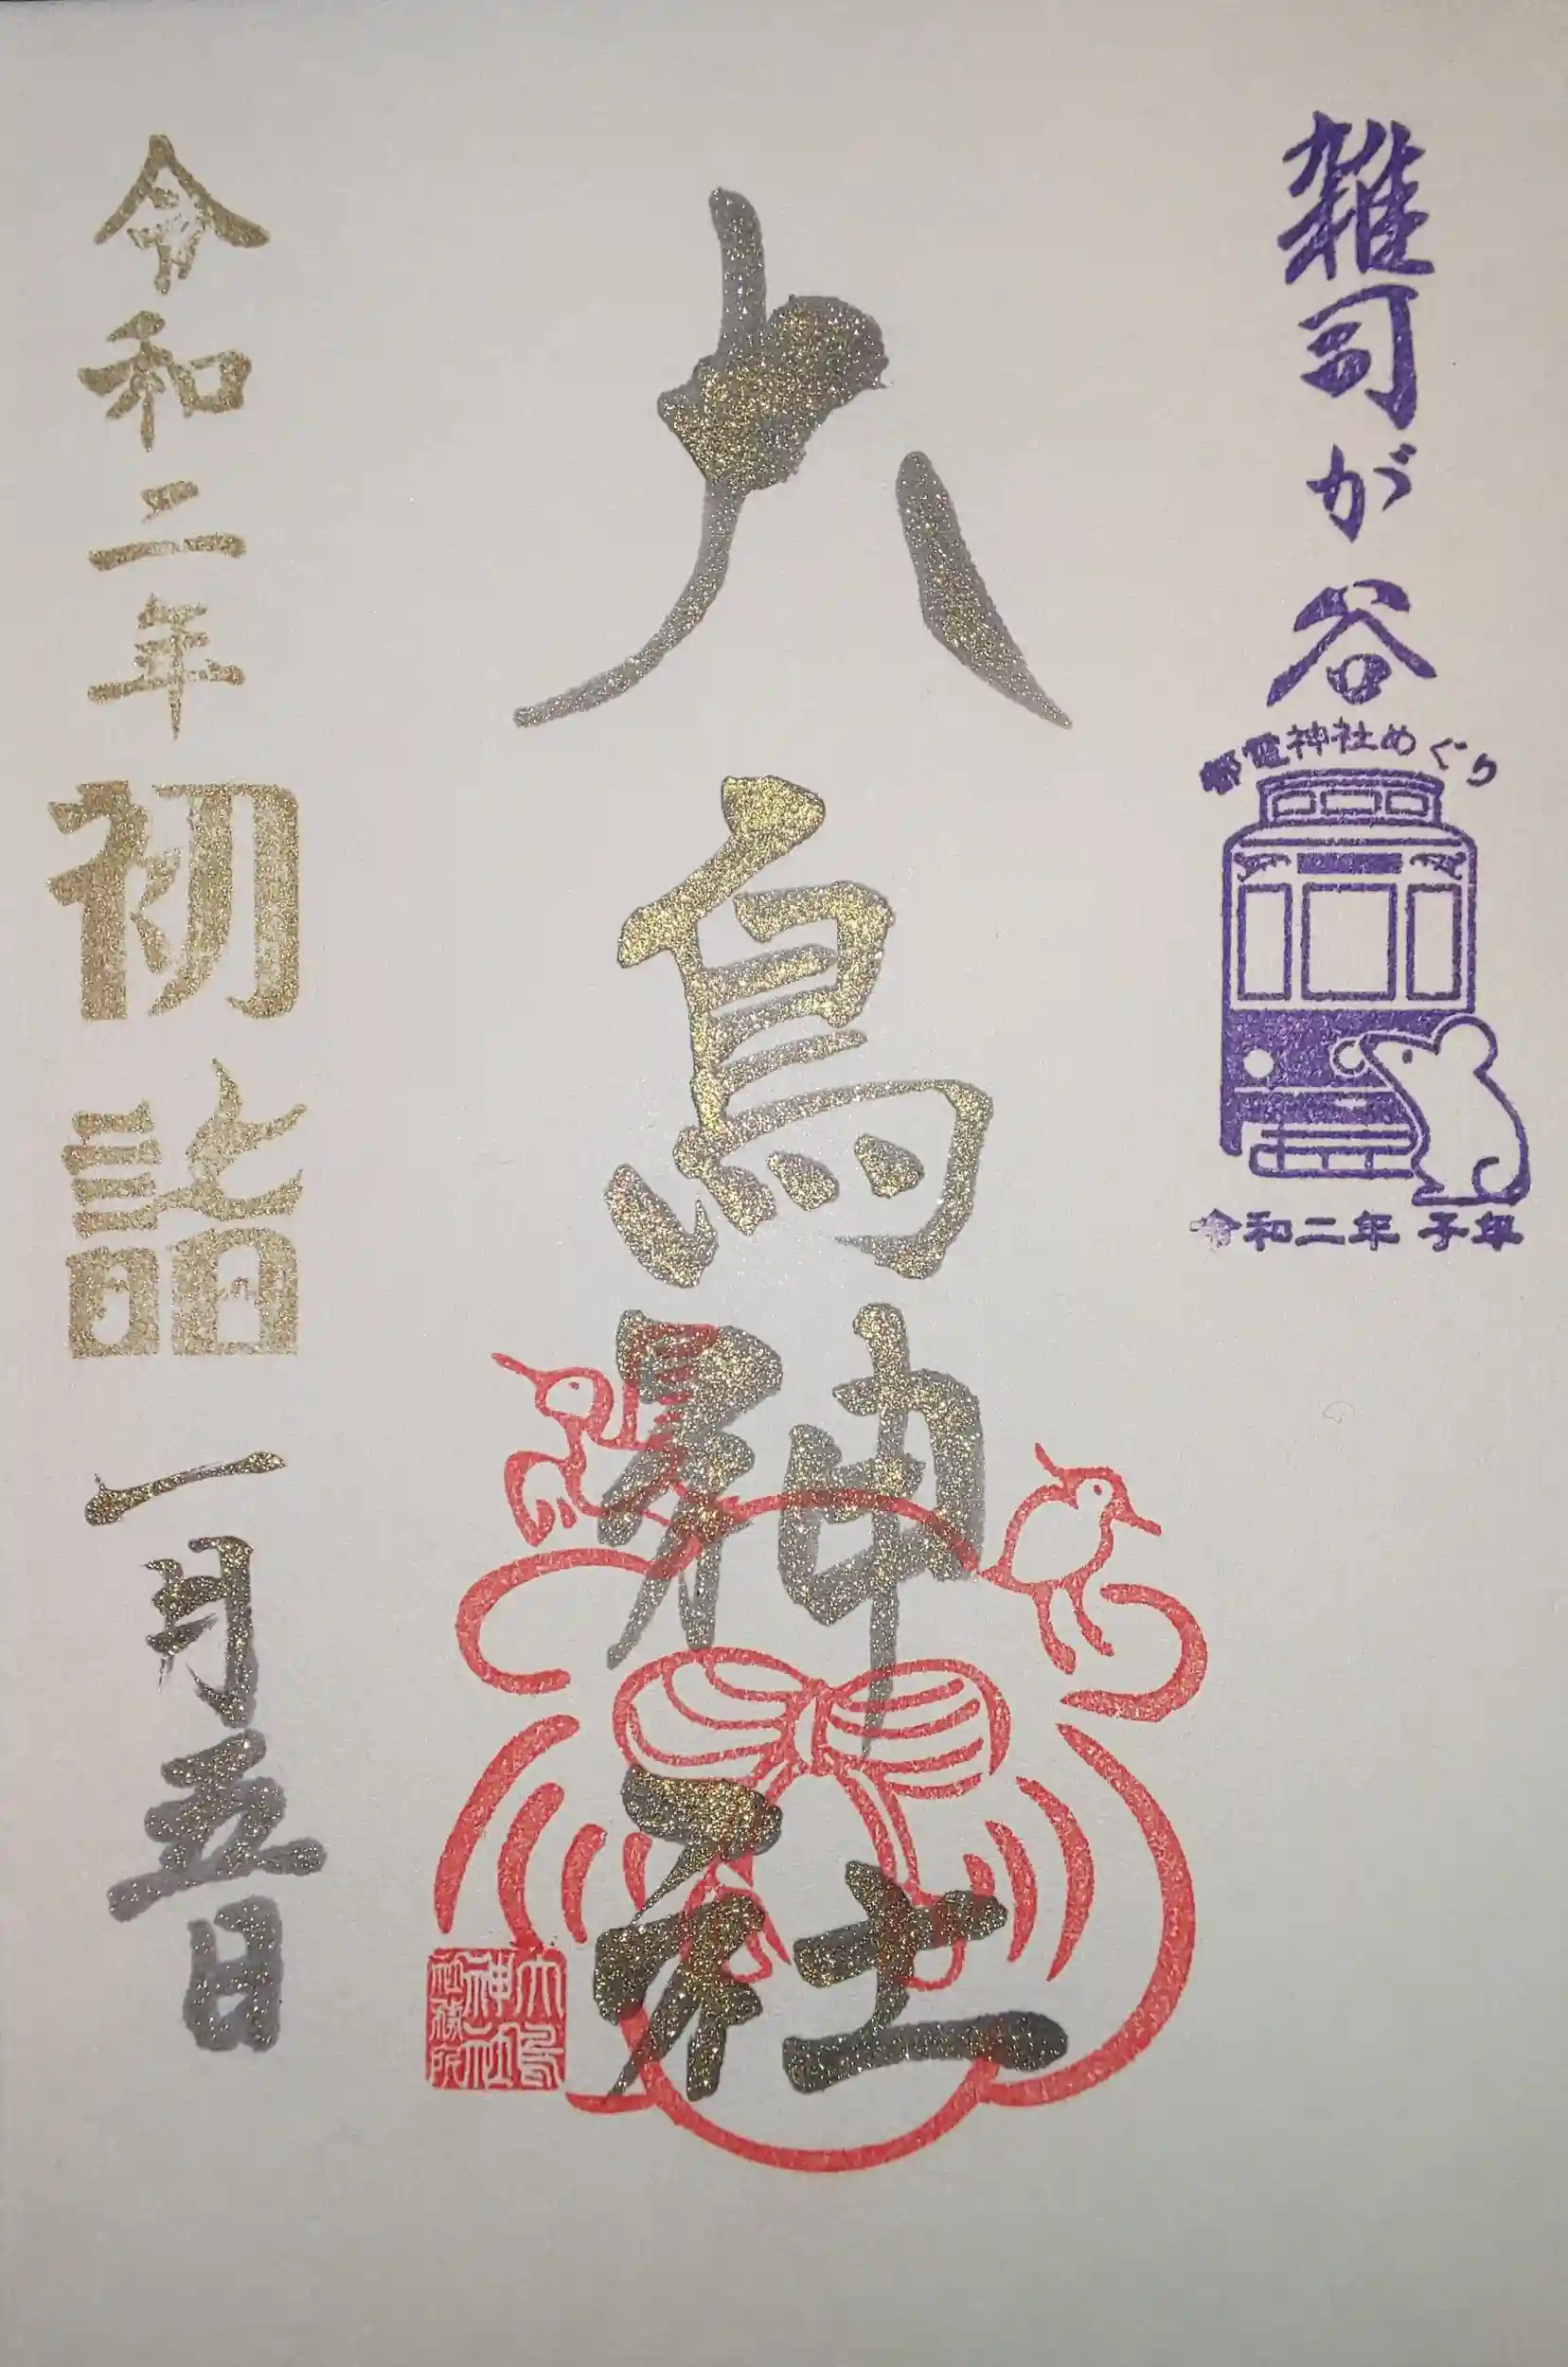 雑司が谷
都電神社めぐり
令和二年 子年
大鳥神社
大鳥
神社
社務所
令和二年 初詣 一月五日